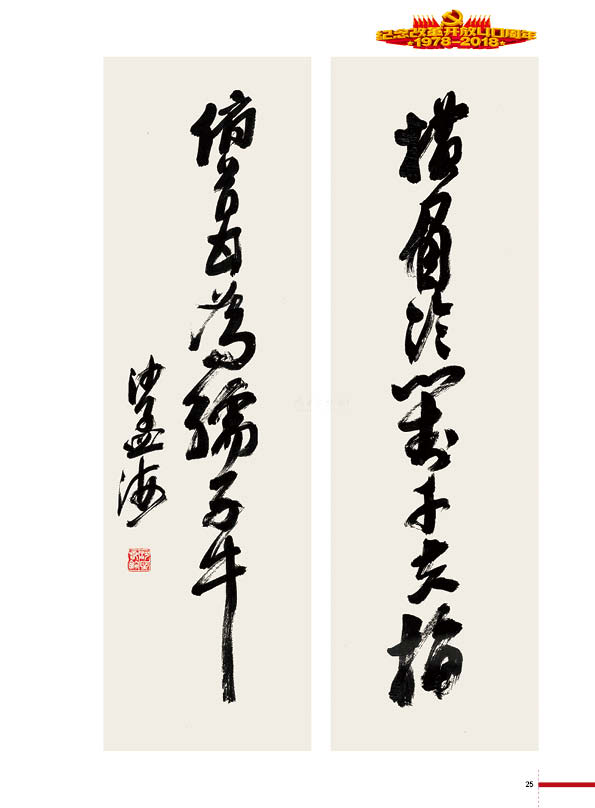 纪念改革开放40周年
1978-2018
横眉冷對千夫指
俯首甘為孺子牛
沙孟海
25